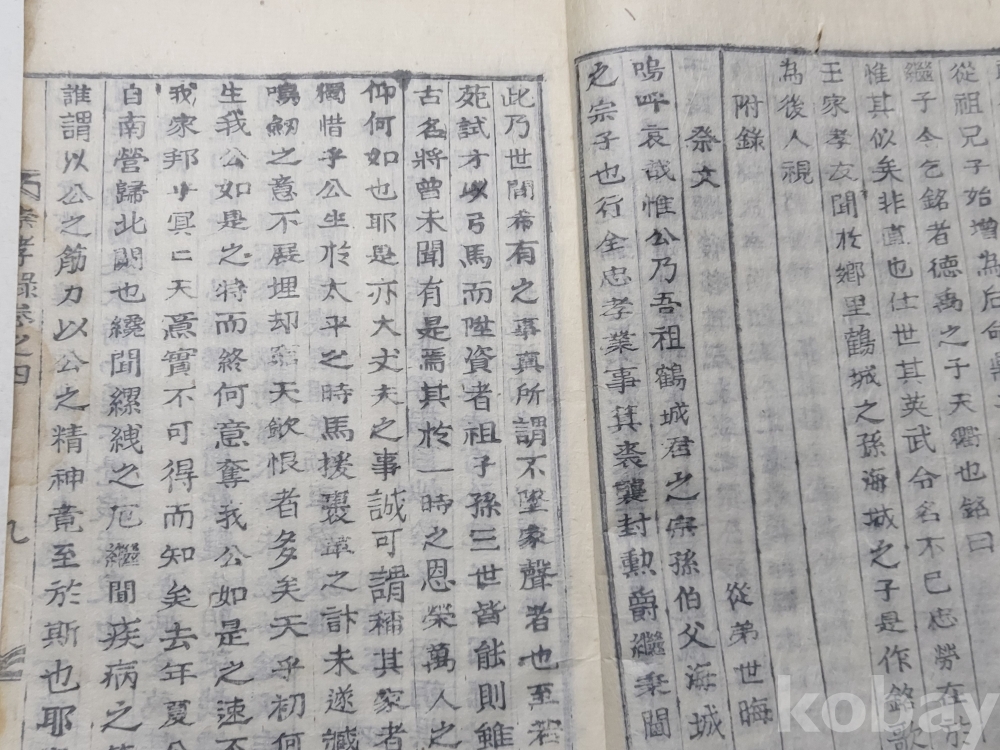 從祖兄子始增為后
繼子今乞銘者德禹之子天衢也銘曰
惟其似矣非直也仕世其英武分名不已忠勞在
王家孝友聞於鄉里鶴城之孫海城之子是作銘歌
為後人視
附錄
祭文 從弟世晦
嗚呼哀哉惟公乃吾祖鶴城君之宗孫伯父海城
之宗子也行全忠孝業事箕裘襲封勲爵繼乘閫
此乃世間希有之事真所謂不墜家聲者也至若
苑試才以弓馬而陞資者祖子孫三世皆能則雖
古名將曾未聞有是焉其於一時之恩榮萬人之
仰何如也耶是亦大丈夫之事誠可謂稱其家者
獨惜乎公坐於太平之時馬援裹革之計未遂
鳴劒之意不展埋却窮天飲恨者多矣天乎初何
生我公如是之特而終何意奪我公如是之速不
我家邦少冥二天意實不可得而知矣去年夏公
自南營歸此閫也纔聞縲絏之厄繼聞疾病之
誰謂以公之筋力以公之精神竟至於斯也耶
孝錄卷之四 九
kobay